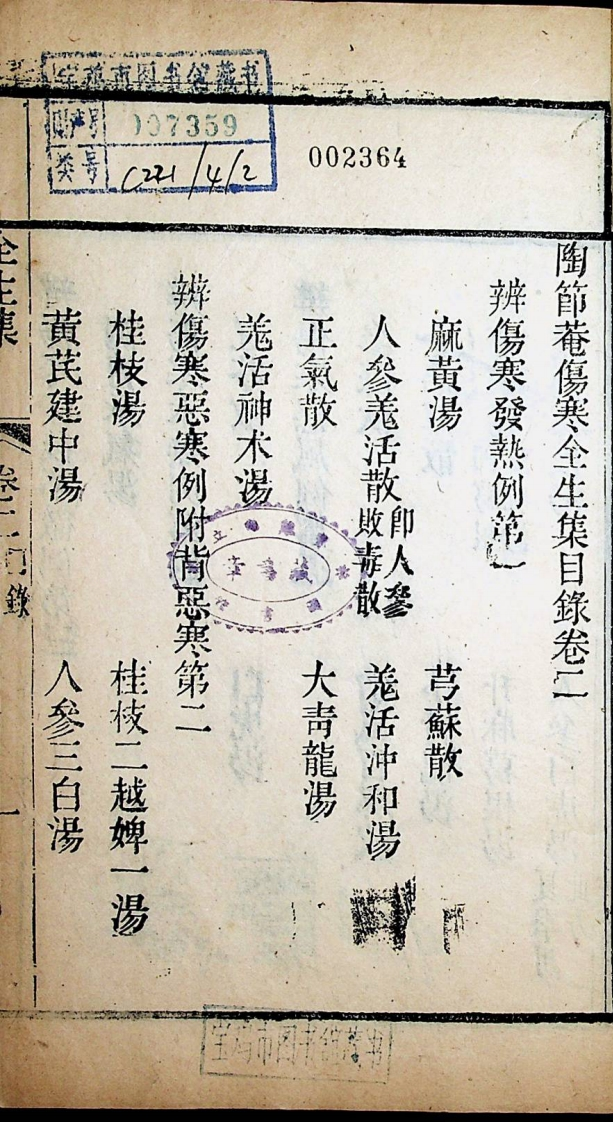 宝鸡市图书馆藏书
007359
类号
C221/4/2
002364
陶節菴傷寒全生集目錄卷二
辨傷寒發熱例第一
麻黃湯　芎蘇散
人參羗活散 卽人參敗毒散　羗活沖和湯
正氣散　大靑龍湯
羗活神术湯
辨傷寒惡寒例附背惡寒第二
桂枝湯　桂枝二越婢一湯
黃芪建中湯　人參三白湯
全生集　卷二目錄　一
宝鸡市图书馆藏书